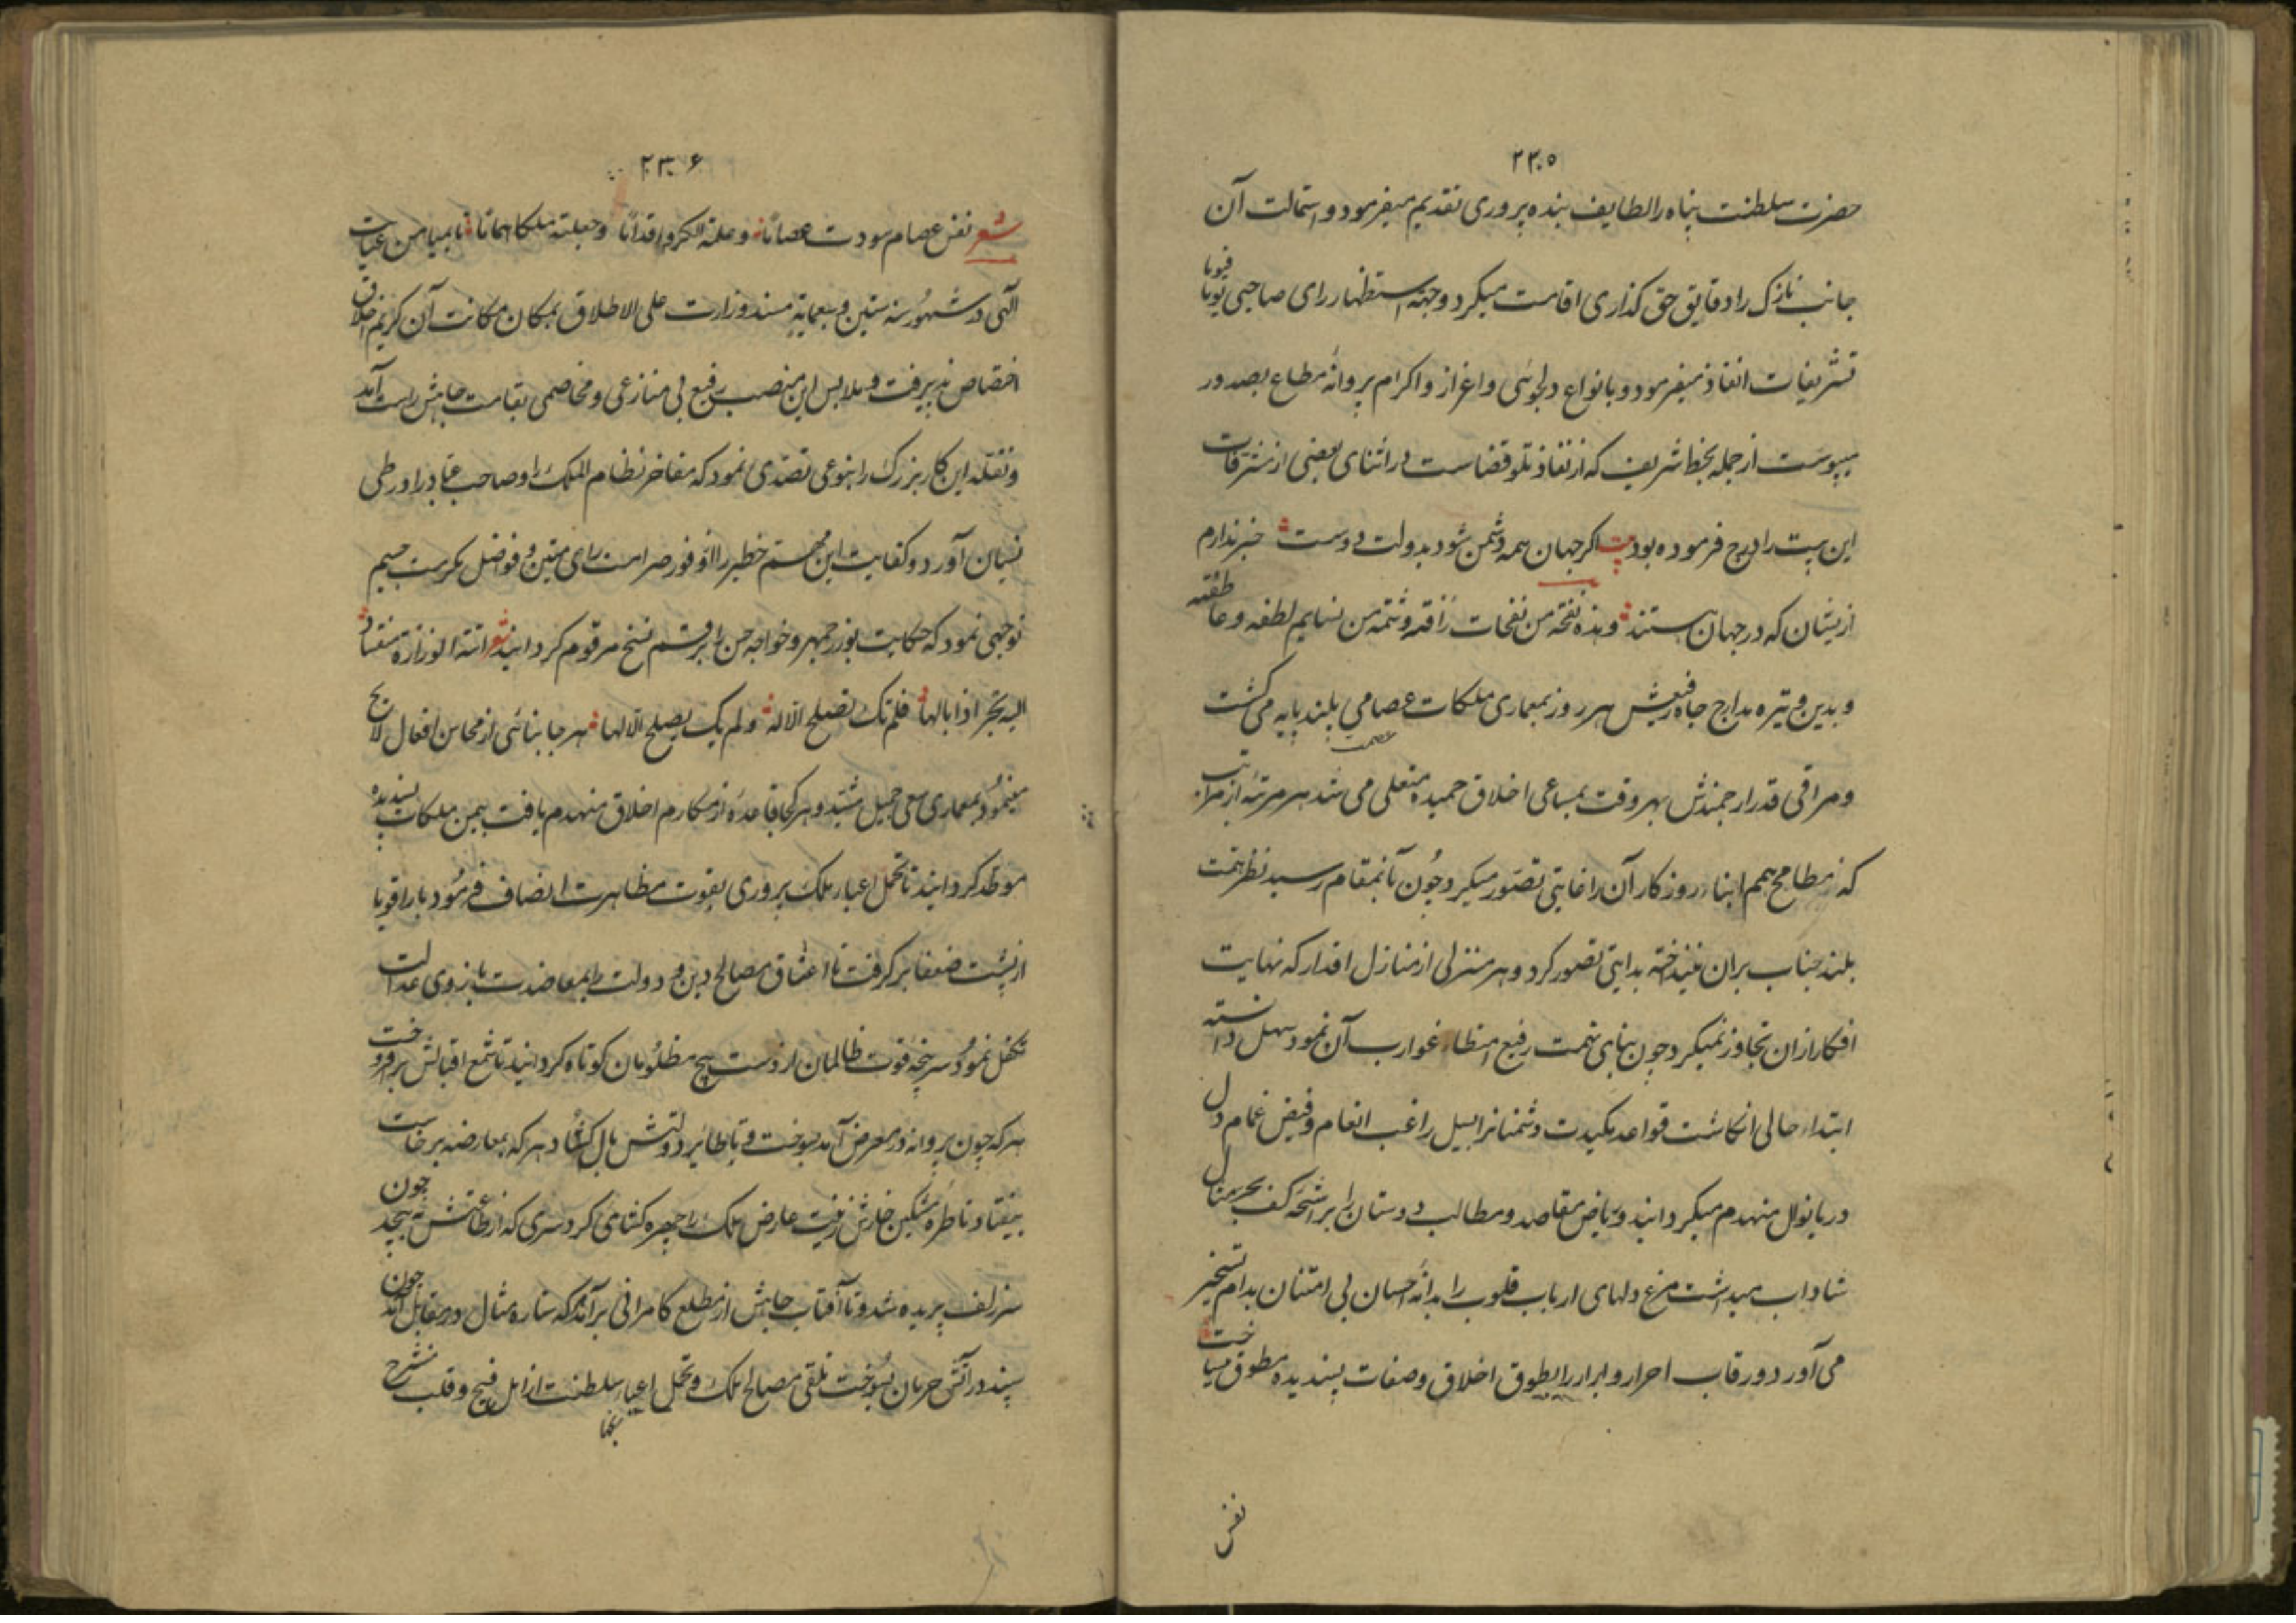 ۲۳۰۵
حضرت سلطنت پناه را لطایف بنده پروری تقدیم میفرمود و استمالت آن
جانب نازک را دقایق حق کذاری اقامت میکرد و جهة استظهار رای صاحبی یوما فیوما
تشریفات انفاذ میفرمود و بانواع دلجوئی و اعزاز و اکرام پروانهٔ مطاع بصدور
میپیوست از جمله بخط شریف که از نفاذ تلو قضاست در اثنای بعضی از مشرفات
این بیت را درج فرموده بود بیت اکر جهان همه دشمن شود بدولت دوست خبر ندارم
ازیشان که در جهان هستند و هذه نفحة من نفحات رافته و شمة من نسایم لطفه و عاطفته
و بدین وتیره مدارج جاه رفیعش هر روز بمعماری ملکات عصامی بلند پایه می کشت
عصمت
و مراقی قدر ارجمندش بهر وقت بمساعی اخلاق حمیده متعلی می شد هر مرتبهٔ از مراتب
که از مطامح همم ابناء روزکار آن را غایتی تصور میکرد چون بآنمقام رسید نظر همت
بلند جناب بران نینداخته بدایتی تصور کرد و هر منزلی از منازل اقدار که نهایت
افکار ازان تجاوز نمیکرد چون بپای همت رفیع امتطاء غوارب آن نمود سهل دانسته
ابتداء حالی انکاشت قواعد مکیدت دشمنانرا بسیل راغب انعام و فیض غمام دل
دریا نوال منهدم میکردانید و ریاض مقاصد و مطالب دوستان را برشحهٔ کف بحر منال
شاداب میداشت مرغ دلهای ارباب قلوب را بدانهٔ احسان بی امتنان بدام تسخیر
می آورد و رقاب احرار و ابرار را بطوق اخلاق و صفات پسندیده مطوق میساخت
نفس
۲۳۰۶
شعر نفس عصام سودت عصاما و علمته الکر و اقداما و جعلته ملکا هماما تا بمیامن عنایت
الهی در شهور سنه ستین و سبعمایة مسند وزارت علی الاطلاق بمکان مکانت آن کریم اخلاق
اختصاص پذیرفت و ملابس این منصب رفیع بی منازعی و مخاصمی بقامت جاهش راست آمد
و تقلد این کار بزرک را بنوعی تصدی نمود که مفاخر نظام الملک را و صاحب عباد را در طی
نسیان آورد و کفایت این مهم خطیر را از وفور صرامت رای متین و فواضل مکرمت جسیم
توجهی نمود که حکایت بوزرجمهر و خواجه حسن را برقم نسخ مرقوم کردانید شعر اتته الوزارة منقادة
الیه تجرر اذیالها فلم تک تصلح الا له و لم یک یصلح الا لها هر جا بنائی از محاسن افعال لایح
مینمود بمعماری سعی جمیل مشید و هر کجا قاعدهٔ از مکارم اخلاق منهدم یافت بیمن ملکات پسندیده
موطد کردانید تا تحمل اعباء ملک پروری بقوت مظاهرت انصاف فرمود بار اقویا
از پشت ضعفا بر کرفت تا اعتناق مصالح دین و دولت را بمعاضدت بازوی عدالت
تکفل نمود سر پنجه قوت ظالمان از دست پیچ مظلومان کوتاه کردانید تا شمع اقبالش بر افروخت
هر که چون پروانه در معرض آمد بسوخت و تا طایر دولتش بال کشاد هر که بمعارضه برخاست
بیفتاد تا طره مشکین خارش زینت عارض ملک را چهره کشای کرد سری که از طاعتش نه پیچد چون
سر زلف بریده شد و تا آفتاب جاهش از مطلع کامرانی برآمد هر که ستاره مثال در مقابل آمد چون
سپند در آتش حرمان بسوخت تلقی مصالح ملک و تحمل اعباء سلطنت از امل فسیح و قلب منشرح